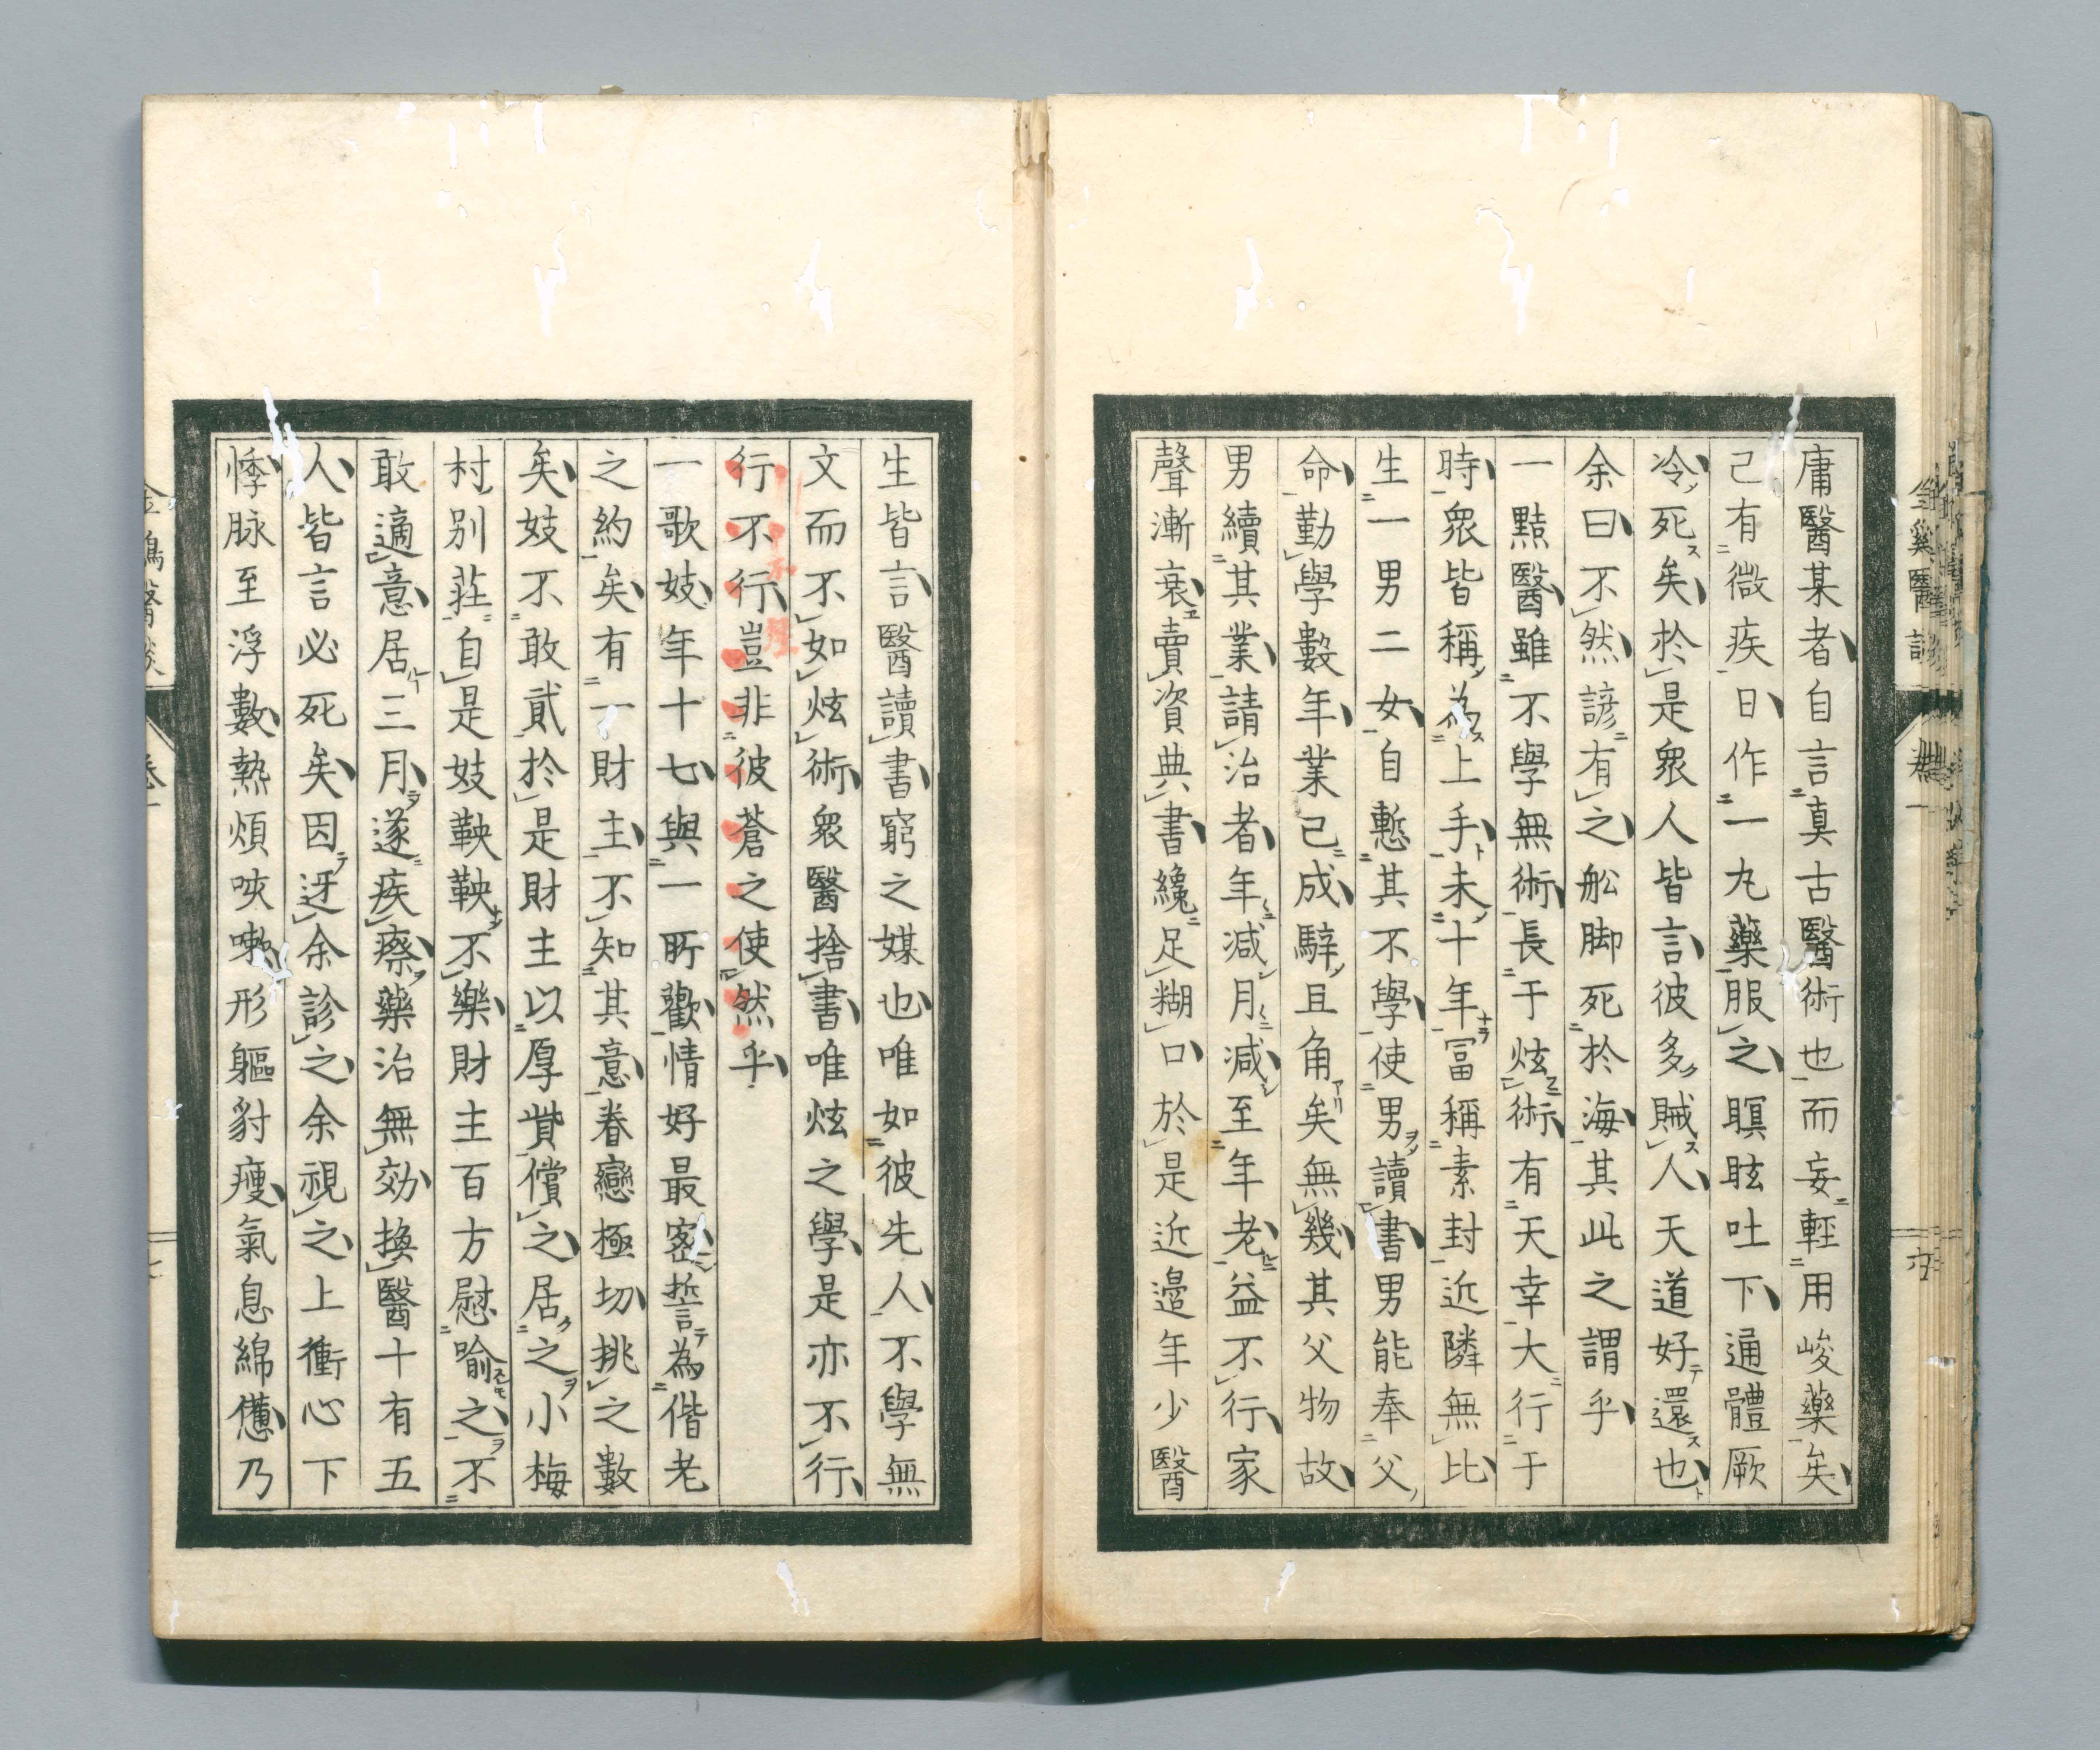 庸醫某者自言真古醫術也而妄輕用峻藥矣
己有微疾日作一丸藥服之瞑眩吐下通體厥
冷死矣於是衆人皆言彼多賊人天道好還也
余曰不然諺有之舩脚死於海其此之謂乎
一黠醫雖不學無術長于炫術有天幸大行于
時衆皆稱為上手未十年冨稱素封近隣無比
生一男二女自慙其不學使男讀書男能奉父
命勤學數年業已成騂且角矣無幾其父物故
男續其業請治者年減月減至年老益不行家
聲漸衰賣資典書纔足糊口於是近邉年少醫
生皆言醫讀書窮之媒也唯如彼先人不學無
文而不如炫術衆醫捨書唯炫之學是亦不行
行不行豈非彼蒼之使然乎
一歌妓年十七與一所歡情好最密誓為偕老
之約矣有一財主不知其意眷戀極切挑之數
矣妓不敢貳於是財主以厚貲償之居之小梅
村別莊自是妓鞅鞅不樂財主百方慰喻之不
敢適意居三月遂疾瘵藥治無効換醫十有五
人皆言必死矣因迓余診之余視之上衝心下
悸脉至浮數熱煩咳嗽形軀豺瘦氣息綿憊乃